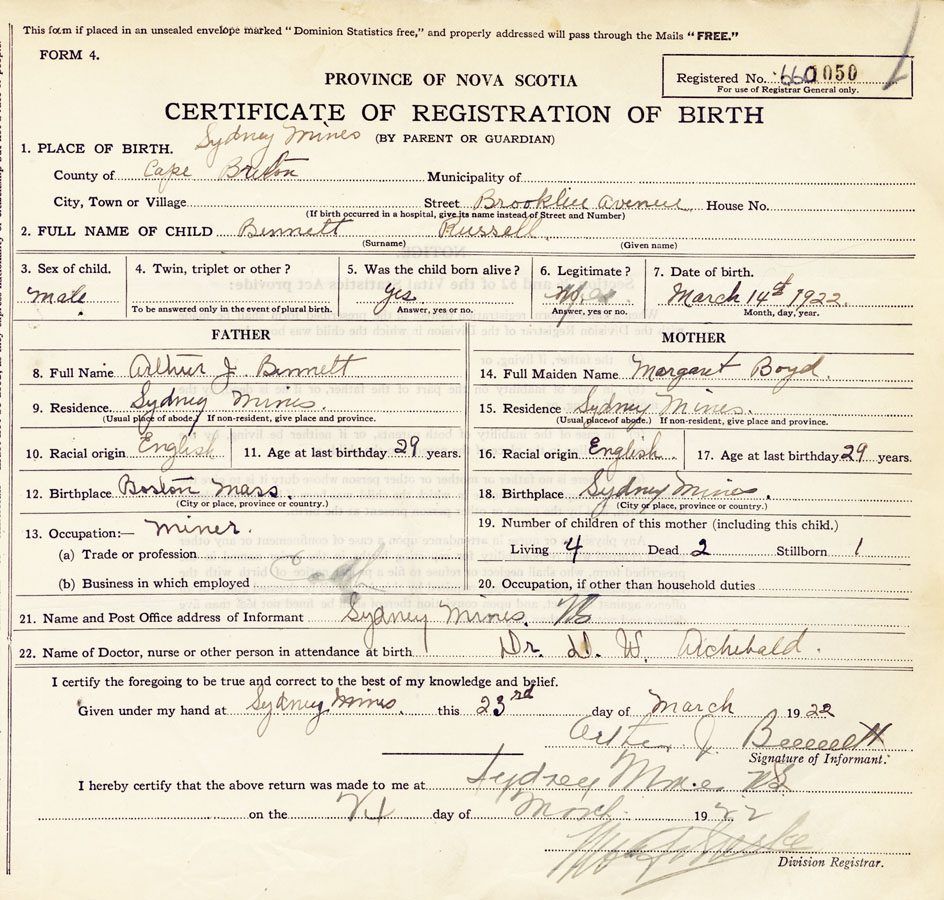 This form if placed in an unsealed envelope marked "Dominion Statistics free," and properly addressed will pass through the Mails "FREE."
FORM 4.
PROVINCE OF NOVA SCOTIA
Registered No. 660 1050
For use of Registrar General only.
CERTIFICATE OF REGISTRATION OF BIRTH
(BY PARENT OR GUARDIAN)
1. PLACE OF BIRTH. Sydney Mines
County of Cape Breton Municipality of
City, Town or Village Street Brookline Avenue House No.
(If birth occurred in a hospital, give its name instead of Street and Number)
2. FULL NAME OF CHILD Bennett Russell
(Surname) (Given name)
3. Sex of child. 4. Twin, triplet or other? 5. Was the child born alive? 6. Legitimate? 7. Date of birth.
male yes yes March 14th 1922
To be answered only in the event of plural birth. Answer, yes or no. Answer, yes or no. Month, day, year.
FATHER
8. Full Name Arthur J. Bennett
9. Residence. Sydney Mines.
(Usual place of abode.) If non-resident, give place and province.
10. Racial origin English 11. Age at last birthday 29 years.
12. Birthplace Boston Mass.
(City or place, province or country.)
13. Occupation:— Miner.
(a) Trade or profession
(b) Business in which employed
MOTHER
14. Full Maiden Name Margaret Boyd.
15. Residence Sydney Mines.
(Usual place of abode.) If non-resident, give place and province.
16. Racial origin English. 17. Age at last birthday 29 years.
18. Birthplace Sydney Mines.
(City or place, province or country.)
19. Number of children of this mother (including this child.)
Living 4 Dead 2 Stillborn 1
20. Occupation, if other than household duties
21. Name and Post Office address of Informant Sydney Mines. NS
22. Name of Doctor, nurse or other person in attendance at birth Dr. D. W. Archibald.
I certify the foregoing to be true and correct to the best of my knowledge and belief.
Given under my hand at Sydney Mines. this 23rd day of March 1922
Arthur J. Bennett
Signature of Informant.
I hereby certify that the above return was made to me at Sydney Mines NS
on the day of March 1922
Division Registrar.